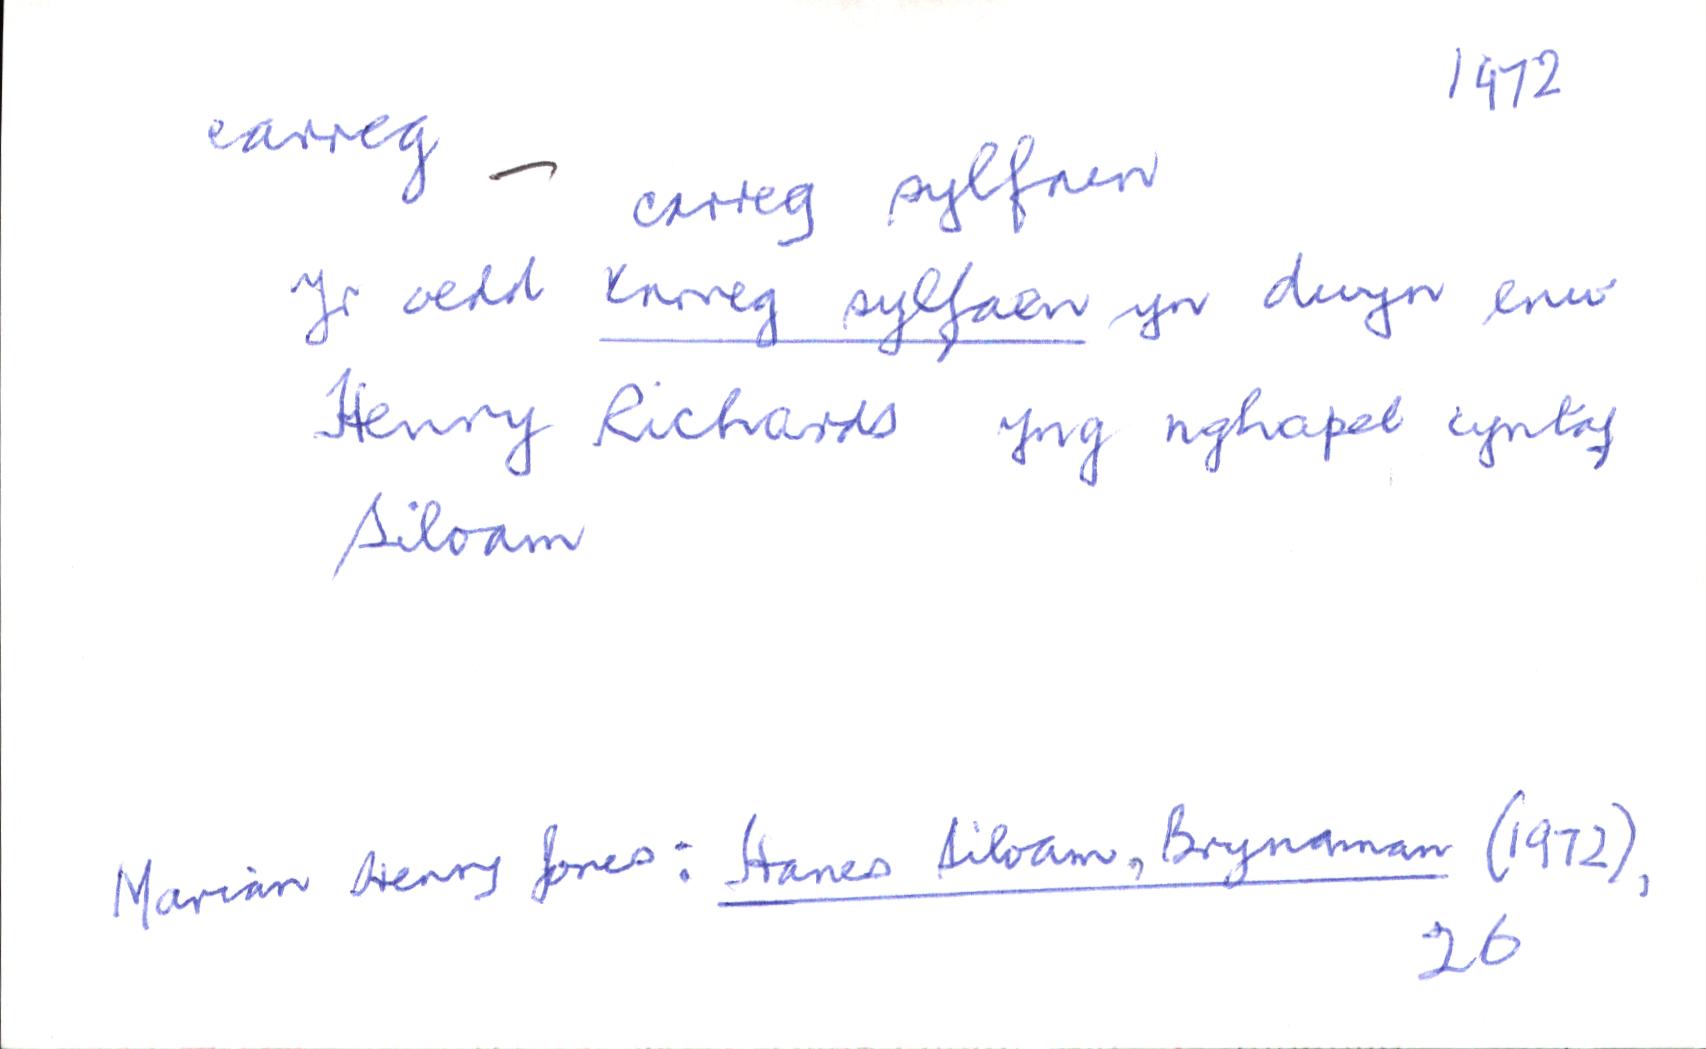 1972
carreg –
carreg sylfaen
Yr oedd carreg sylfaen yn dwyn enw
Henry Richards yng nghapel cyntaf
Siloam
Marian Henry Jones: Hanes Siloam, Brynaman (1972),
26